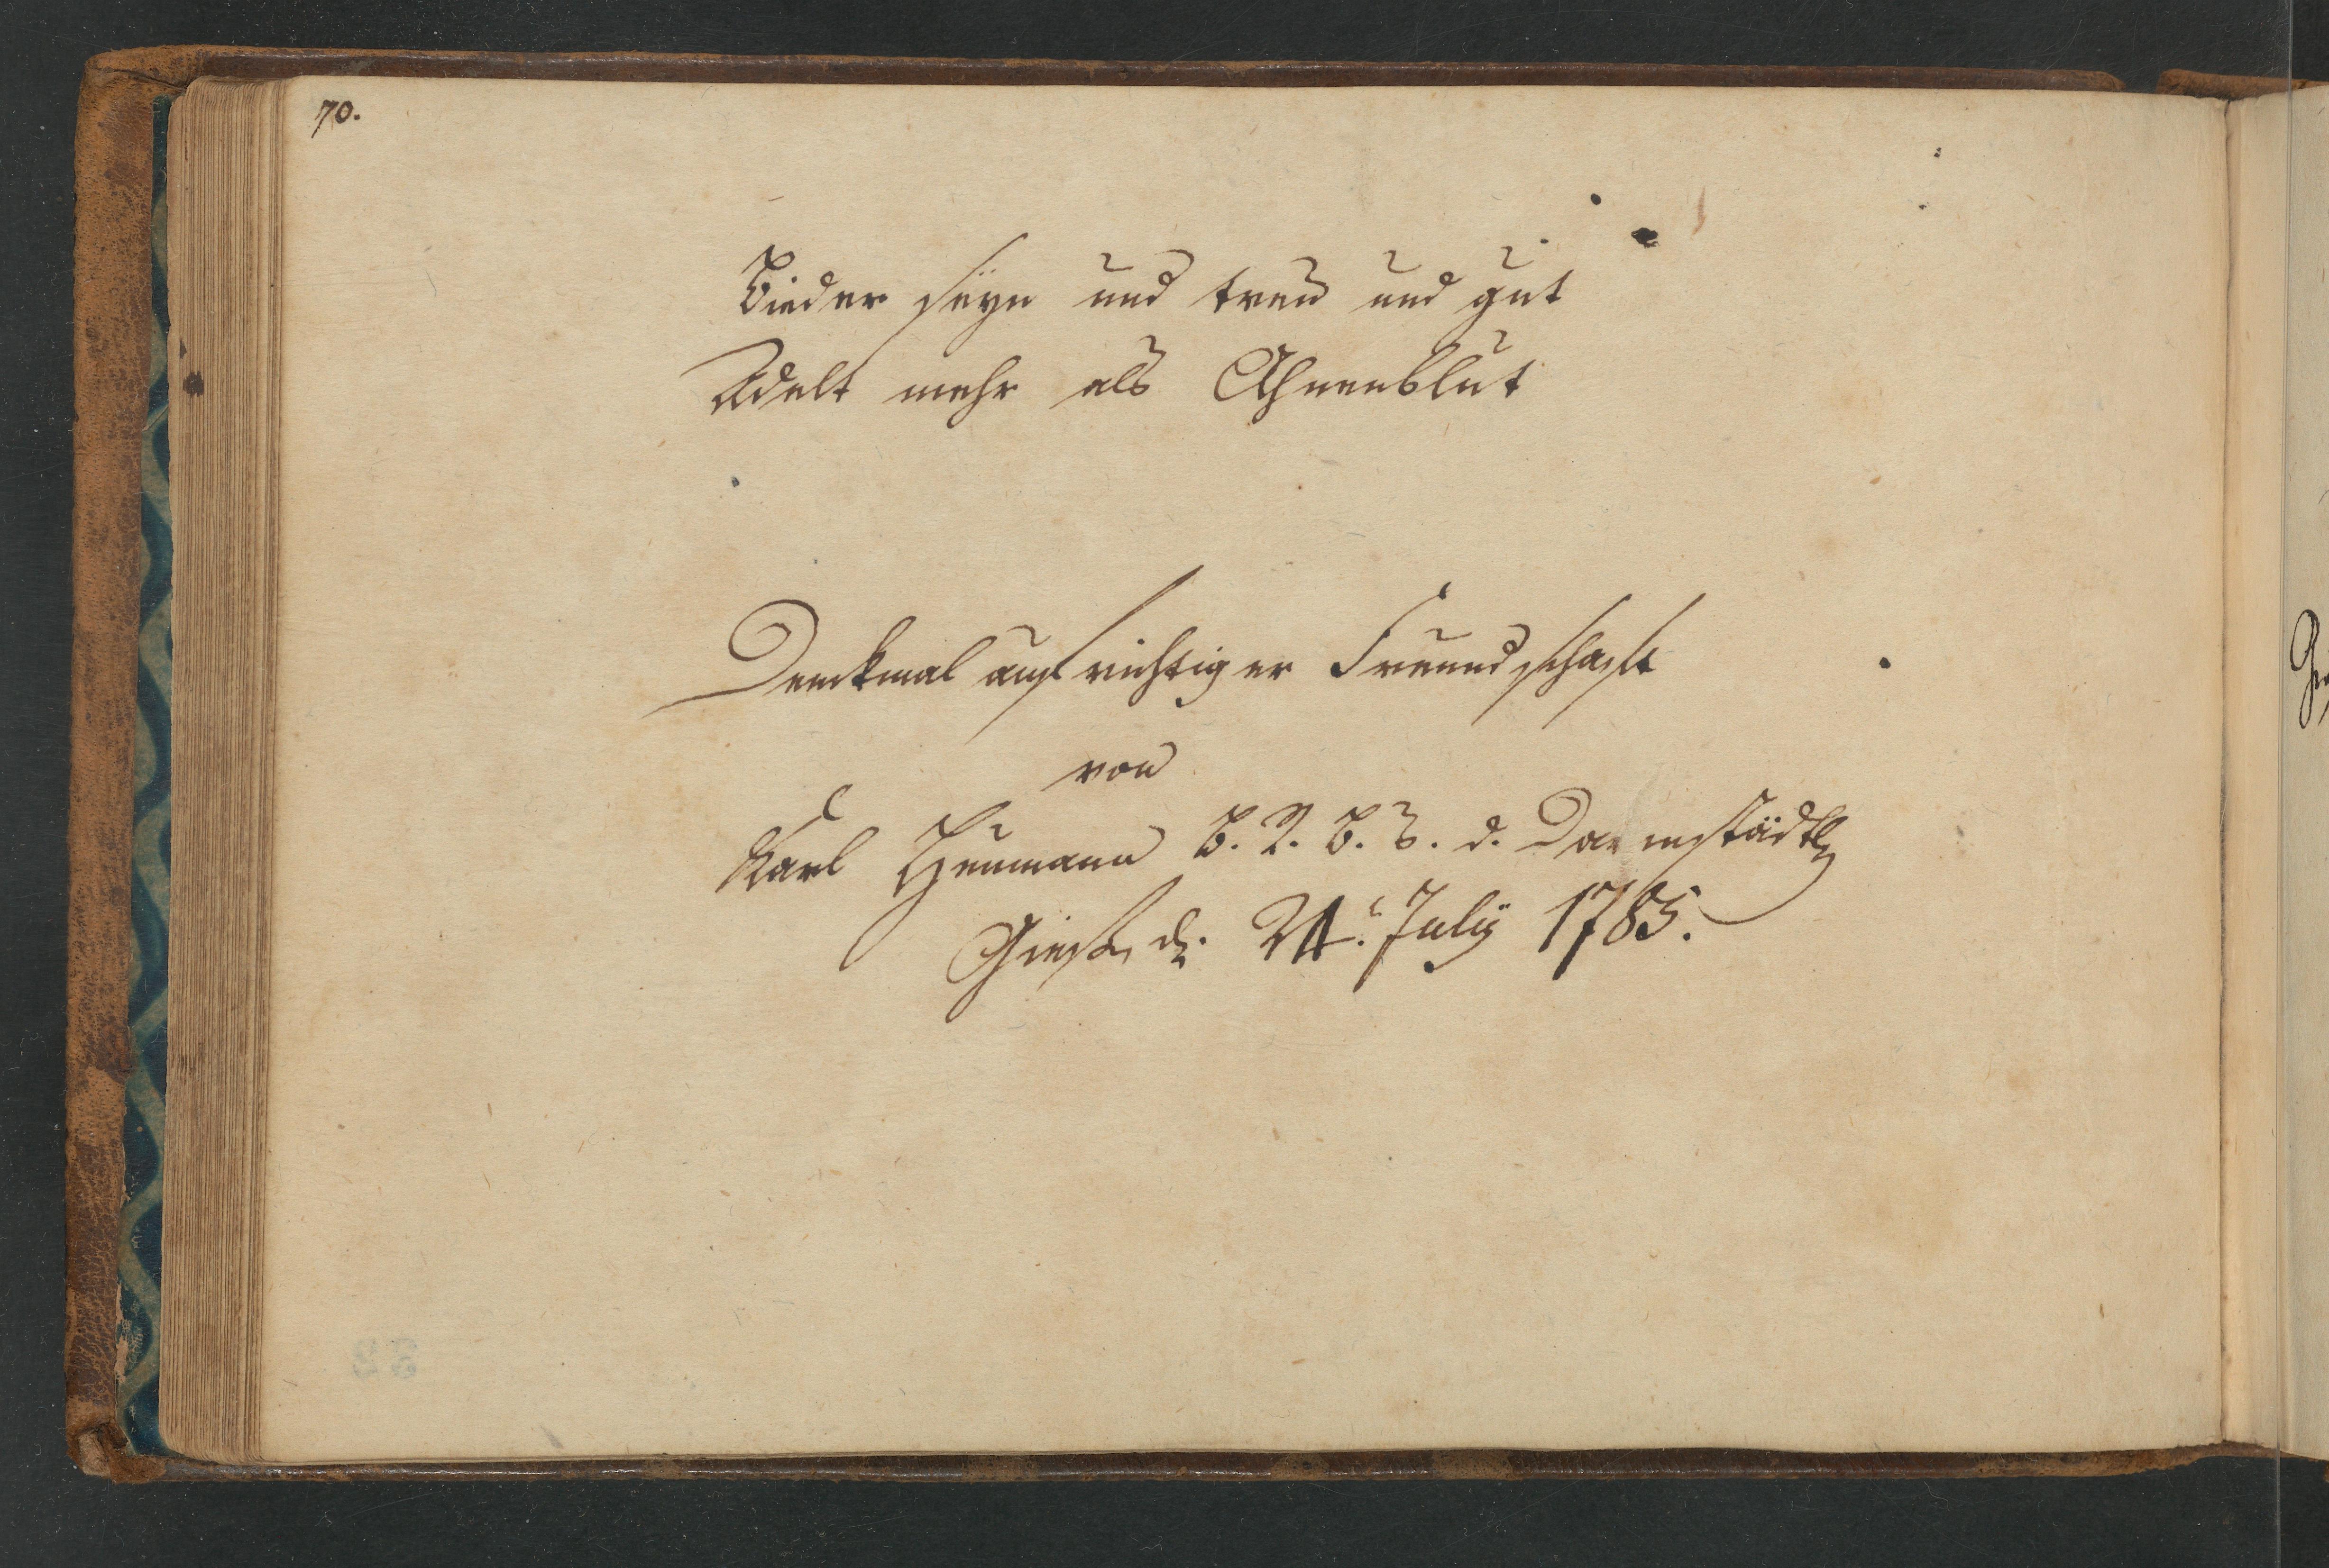 70.
Bieder seÿn und treu und gut
Adelt mehr als Ahnenblut
Denckmal aufrichtiger Freundschaft
von
Karl Heumann B. R. B. d. Darmstädtl
Giesen d. 24. Julÿ 1785.